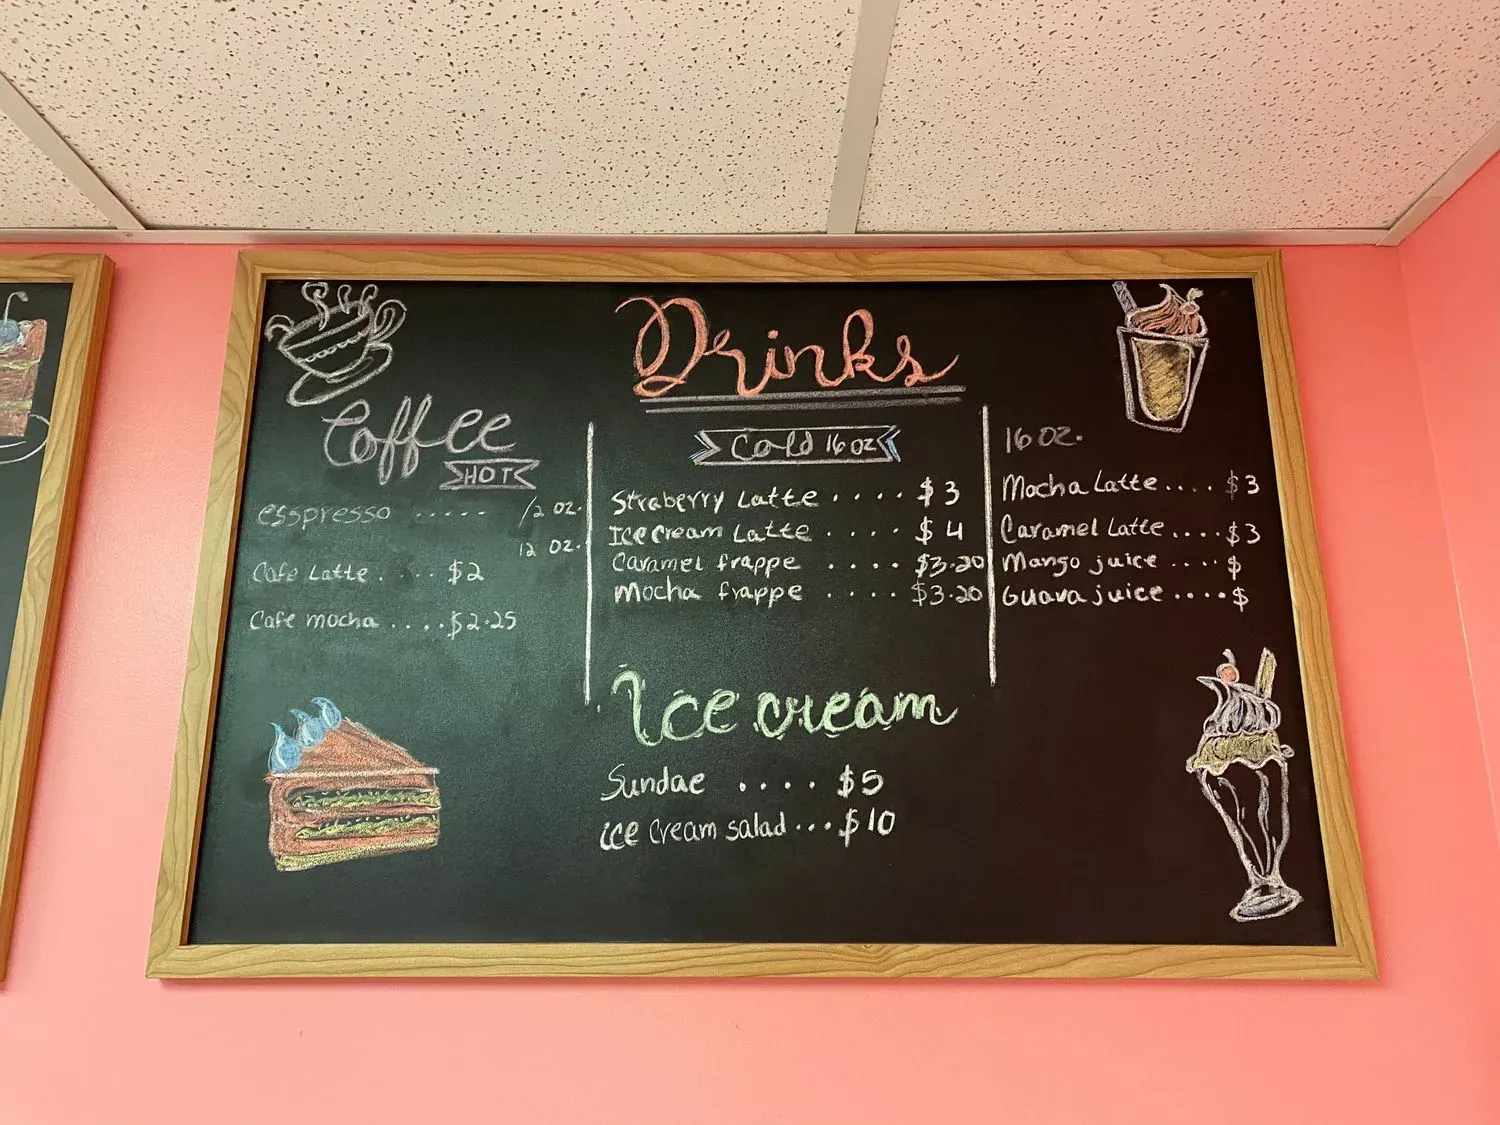 Drinks
Coffee
HOT
esspresso ..... /2 oz.
12 oz.
Cafe Latte .... $2
Cafe mocha .... $2.25
Cold 16 oz
Straberry Latte .... $3
Ice cream Latte .... $4
Caramel frappe .... $3.20
Mocha frappe .... $3.20
16 oz.
Mocha Latte .... $3
Caramel Latte .... $3
Mango juice .... $
Guava juice .... $
Ice cream
Sundae .... $5
ice cream salad ... $10